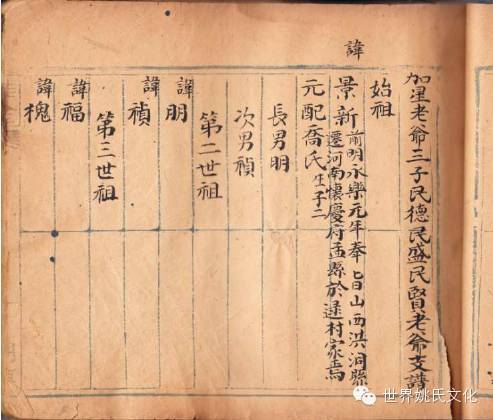 加星老爺三子民德民盛民賢老爺支譜
始祖
諱
景新
前明永樂元年奉旨山西洪洞縣
遷河南懷慶府孟縣於逯村家焉
元配喬氏生子二
長男明
次男禎
第二世祖
諱明
諱禎
第三世祖
諱福
諱槐
世界姚氏文化